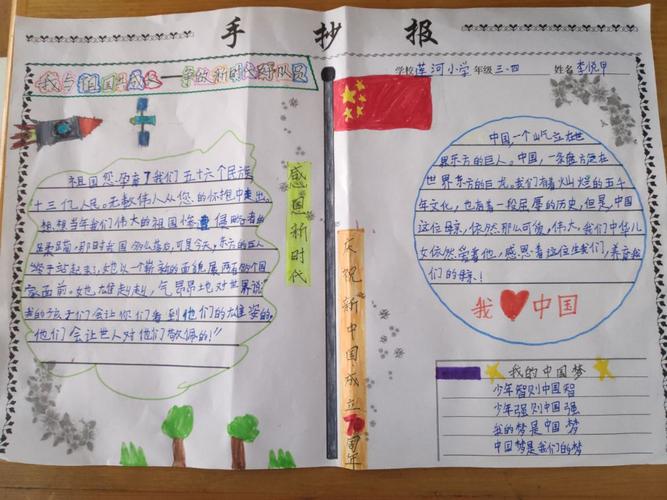 手抄报
我与祖国共成长——争做新时代好队员
学校莲河小学 年级三.四 姓名李悦甲
祖国您孕育了我们五十六个民族
十三亿人民。无数伟人从您的怀抱中走出。
想想当年我们伟大的祖国惨遭侵略者的
那时我国那么落后,可是今天,东方的巨人
终于站起来了,她以一个崭新的面貌展两在的个国
家面前。她雄赳赳,气昂昂地对世界说"
我的孩子们会让你们看到他们的雄姿的,
他们会让世人对他们敬佩的!"
感恩新时代
庆祝新中国成立70周年
中国,一个屹立在世
界东方的巨人。中国,一条盘旋在
世界东方的巨龙。我们有着灿烂的五千
年文化,也有着一段屈辱的历史,但是,中国
这位母亲,依然那么可爱,伟大。我们中华儿
女依然爱着他,感恩着这位生我们,养育我
们的母亲!
我❤中国
我的中国梦
少年智则中国智
少年强则中国强
我的梦是中国梦
中国梦是我们的梦